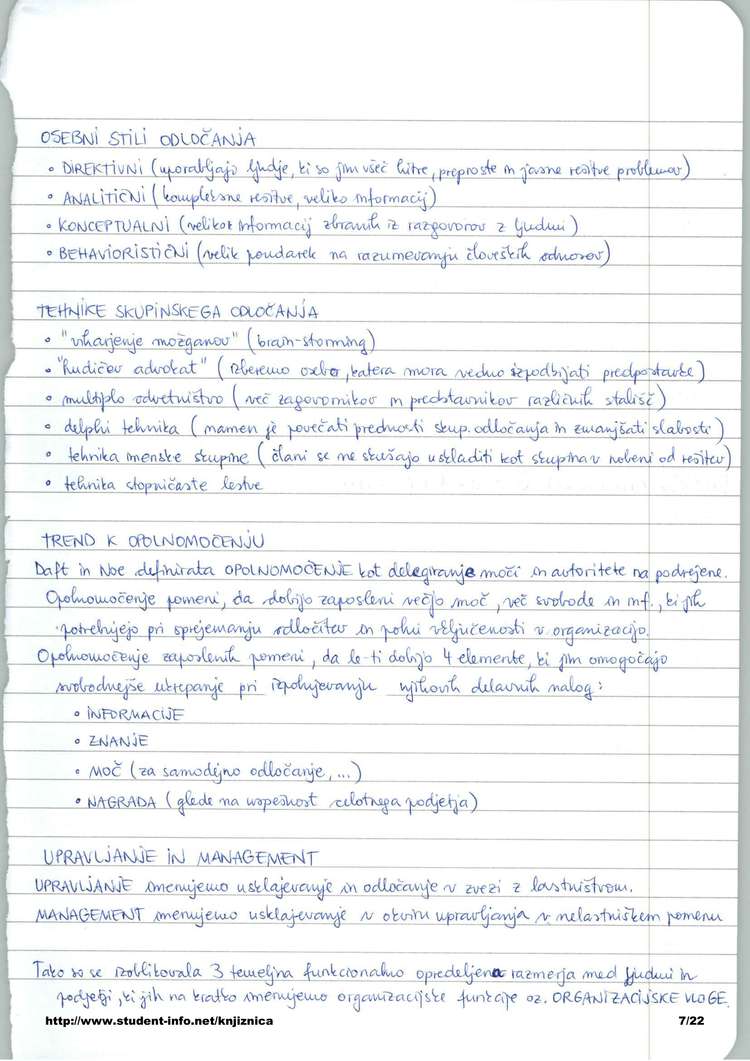 OSEBNI STILI ODLOČANJA
• DIREKTIVNI (uporabljajo ljudje, ki so jim všeč hitre, preproste in jasne rešitve problemov)
• ANALITIČNI (kompleksne rešitve, veliko informacij)
• KONCEPTUALNI (veliko informacij zbranih iz razgovorov z ljudmi)
• BEHAVIORISTIČNI (velik poudarek na razumevanju človeških odnosov)
TEHNIKE SKUPINSKEGA ODLOČANJA
• "viharjenje možganov" (brain-storming)
• "hudičev advokat" (izberemo osebo, katera mora vedno izpodbijati predpostavke)
• multiplo odvetništvo (več zagovornikov in predstavnikov različnih stališč)
• delphi tehnika (namen je povečati prednosti skup. odločanja in zmanjšati slabosti)
• tehnika imenske skupine (člani se ne skušajo uskladiti kot skupina v nobeni od rešitev)
• tehnika stopničaste lestve
TREND K OPOLNOMOČENJU
Daft in Noe definirata OPOLNOMOČENJE kot delegiranje moči in avtoritete na podrejene.
Opolnomočenje pomeni, da dobijo zaposleni večjo moč, več svobode in inf., ki jih
potrebujejo pri sprejemanju odločitev in polni vključenosti v organizacijo.
Opolnomočenje zaposlenih pomeni, da le-ti dobijo 4 elemente, ki jim omogočajo
svobodnejše ukrepanje pri izpolnjevanju njihovih delavnih nalog:
• INFORMACIJE
• ZNANJE
• MOČ (za samodejno odločanje, ...)
• NAGRADA (glede na uspešnost celotnega podjetja)
UPRAVLJANJE IN MANAGEMENT
UPRAVLJANJE imenujemo usklajevanje in odločanje v zvezi z lastništvom.
MANAGEMENT imenujemo usklajevanje v okviru upravljanja v nelastniškem pomenu
Tako so se izoblikovala 3 temeljna funkcionalno opredeljena razmerja med ljudmi in
podjetji, ki jih na kratko imenujemo organizacijske funkcije oz. ORGANIZACIJSKE VLOGE.
http://www.student-info.net/knjiznica 7/22